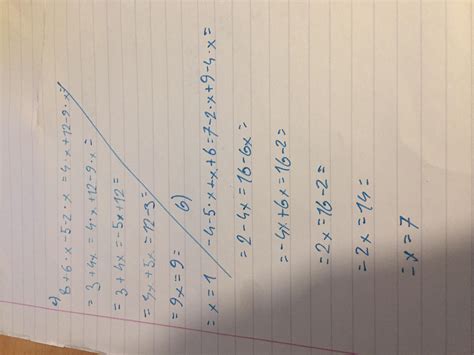 a)
8+6·x-5·2·x=4·x+12-9·x=
=3+4x=4·x+12-9·x=
=3+4x=-5x+12=
=4x+5x=12-3=
=9x=9=
=x=1
b)
-4·5·x+x+6=7-2·x+9-4·x=
=2-4x=16-6x=
=-4x+6x=16-2=
=2x=16-2=
=2x=14=
=x=7